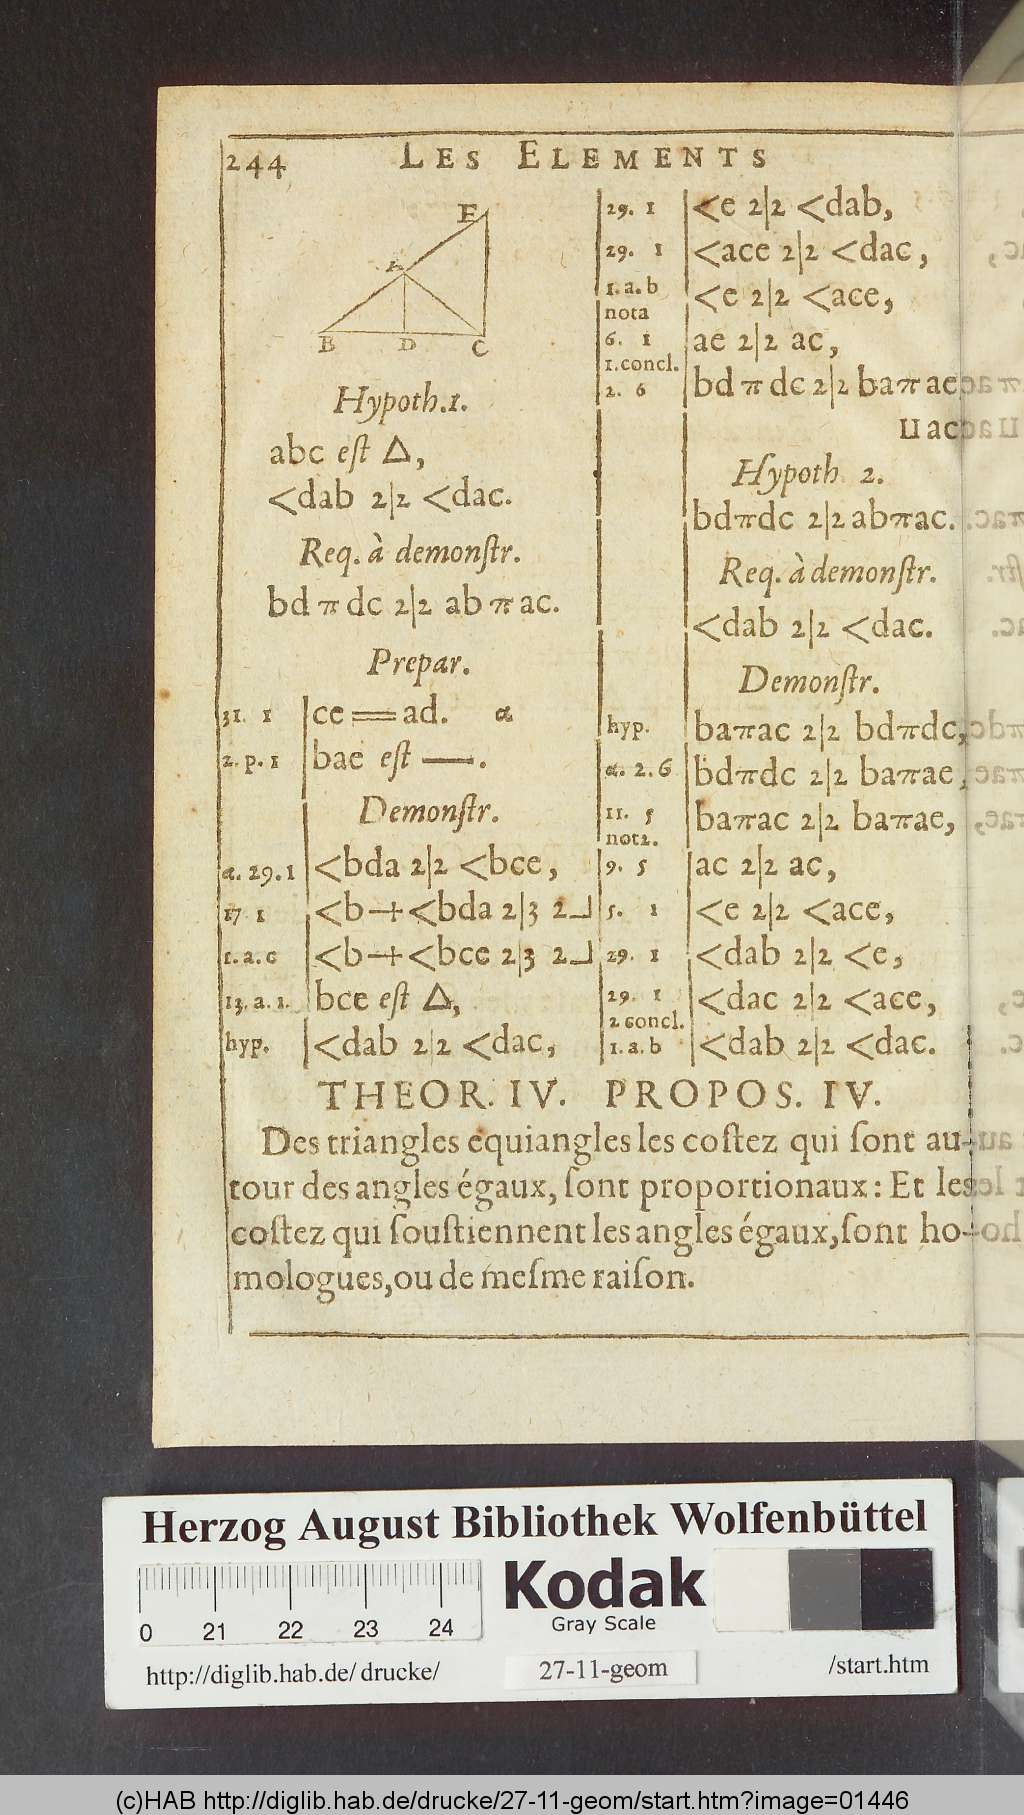 244 LES ELEMENTS
E
A
B D C
Hypoth.1.
abc eſt △,
<dab 2|2 <dac.
Req. à demonſtr.
bd π dc 2|2 ab π ac.
Prepar.
31. 1 ce══ad. α
2. p. 1 bae eſt —.
Demonſtr.
α. 29. 1 <bda 2|2 <bce,
17 1 <b+<bda 2|3 2⅃
1. a. c <b+<bcc 2|3 2⅃
13. a. 1. bce eſt △,
hyp. <dab 2|2 <dac,
29. 1 <e 2|2 <dab,
29. 1 <ace 2|2 <dac,
1. a. b <e 2|2 <ace,
nota
6. 1 ae 2|2 ac,
1. concl.
2. 6 bd π dc 2|2 baπ ae
II ac
Hypoth 2.
bdπdc 2|2 abπac.
Req. à demonſtr.
<dab 2|2 <dac.
Demonſtr.
hyp. baπac 2|2 bdπdc,
α. 2. 6 bdπdc 2|2 baπae,
11. 5 baπac 2|2 baπae,
not2.
9. 5 ac 2|2 ac,
5. 1 <e 2|2 <ace,
29. 1 <dab 2|2 <e,
29. 1 <dac 2|2 <ace,
2 concl.
1. a. b <dab 2|2 <dac.
THEOR. IV. PROPOS. IV.
Des triangles equiangles les coſtez qui ſont au-
tour des angles égaux, ſont proportionaux: Et les
coſtez qui ſouſtiennent les angles égaux, ſont ho-
mologues, ou de meſme raiſon.
Herzog August Bibliothek Wolfenbüttel
0 21 22 23 24
Kodak
Gray Scale
http://diglib.hab.de/ drucke/ 27-11-geom /start.htm
(c)HAB http://diglib.hab.de/drucke/27-11-geom/start.htm?image=01446